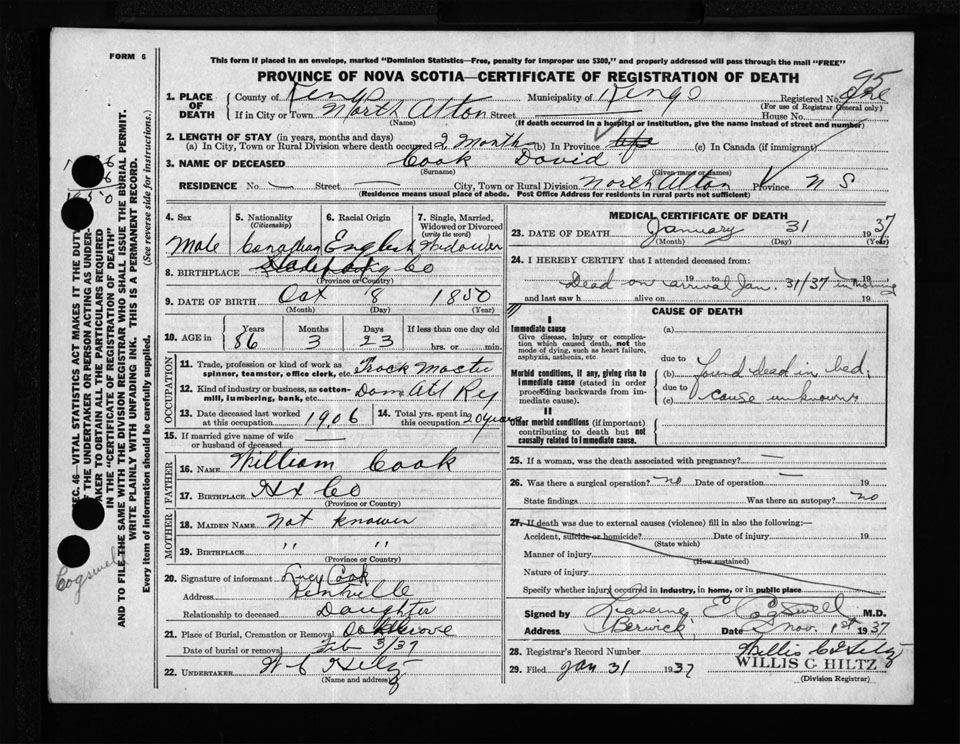 FORM 6
This form if placed in an envelope, marked "Dominion Statistics—Free, penalty for improper use $300," and properly addressed will pass through the mail "FREE"
PROVINCE OF NOVA SCOTIA—CERTIFICATE OF REGISTRATION OF DEATH
95
1. PLACE OF DEATH County of Kings Municipality of Kings Registered No.
(For use of Registrar General only)
If in City or Town North Alton Street House No.
(Name) (If death occurred in a hospital or institution, give the name instead of street and number)
2. LENGTH OF STAY (in years, months and days)
(a) In City, Town or Rural Division where death occurred 2 Month (b) In Province life (c) In Canada (if immigrant)
3. NAME OF DECEASED Cook David
(Surname) (Given name or names)
RESIDENCE No. — Street — City, Town or Rural Division North Alton Province N S
(Residence means usual place of abode. Post Office Address for residents in rural parts not sufficient)
4. Sex 5. Nationality (Citizenship) 6. Racial Origin 7. Single, Married, Widowed or Divorced (write the word)
Male Canadian English Widower
8. BIRTHPLACE Co
(Province or Country)
9. DATE OF BIRTH Oct 8 1850
(Month) (Day) (Year)
10. AGE in Years Months Days If less than one day old
86 3 23 hrs. or min.
OCCUPATION
11. Trade, profession or kind of work as spinner, teamster, office clerk, etc. Track Master
12. Kind of industry or business, as cotton-mill, lumbering, bank, etc. Dom Atl Ry
13. Date deceased last worked at this occupation 1906 14. Total yrs. spent in this occupation 20 years
15. If married give name of wife or husband of deceased —
FATHER
16. NAME William Cook
17. BIRTHPLACE Hx Co
(Province or Country)
MOTHER
18. MAIDEN NAME not known
19. BIRTHPLACE " "
(Province or Country)
20. Signature of informant Lucy Cook
Address Kentville
Relationship to deceased Daughter
21. Place of Burial, Cremation or Removal Oak Grove
Date of burial or removal Feb 3/37
22. UNDERTAKER W C Hiltz
(Name and address)
MEDICAL CERTIFICATE OF DEATH
23. DATE OF DEATH January 31 1937
(Month) (Day) (Year)
24. I HEREBY CERTIFY that I attended deceased from:
19 to 19
Dead on arrival Jan. 31/37 in morning
and last saw h alive on 19
CAUSE OF DEATH
I
Immediate cause
Give disease, injury or complication which caused death, not the mode of dying, such as heart failure, asphyxia, asthenia, etc.
(a)
due to
Morbid conditions, if any, giving rise to immediate cause (stated in order proceeding backwards from immediate cause).
(b) found dead in bed,
due to
(c) cause unknown
II
Other morbid conditions (if important) contributing to death but not causally related to immediate cause.
25. If a woman, was the death associated with pregnancy? —
26. Was there a surgical operation? no Date of operation — 19
State findings Was there an autopsy? no
27. If death was due to external causes (violence) fill in also the following:—
Accident, suicide or homicide? Date of injury 19
(State which)
Manner of injury
(How sustained)
Nature of injury
Specify whether injury occurred in industry, in home, or in public place
Signed by Laverne E Cogswell M.D.
Address Berwick Date Nov. 1st 1937
28. Registrar's Record Number Willis C Hiltz
WILLIS C HILTZ
29. Filed Jan 31 1937
(Division Registrar)
SEC. 46—VITAL STATISTICS ACT MAKES IT THE DUTY
OF THE UNDERTAKER OR PERSON ACTING AS UNDER-
TAKER TO OBTAIN ALL THE PARTICULARS REQUIRED
IN THE "CERTIFICATE OF REGISTRATION OF DEATH"
AND TO FILE THE SAME WITH THE DIVISION REGISTRAR WHO SHALL ISSUE THE BURIAL PERMIT.
WRITE PLAINLY WITH UNFADING INK. THIS IS A PERMANENT RECORD.
Every item of information should be carefully supplied. (See reverse side for instructions.)
Cogswell